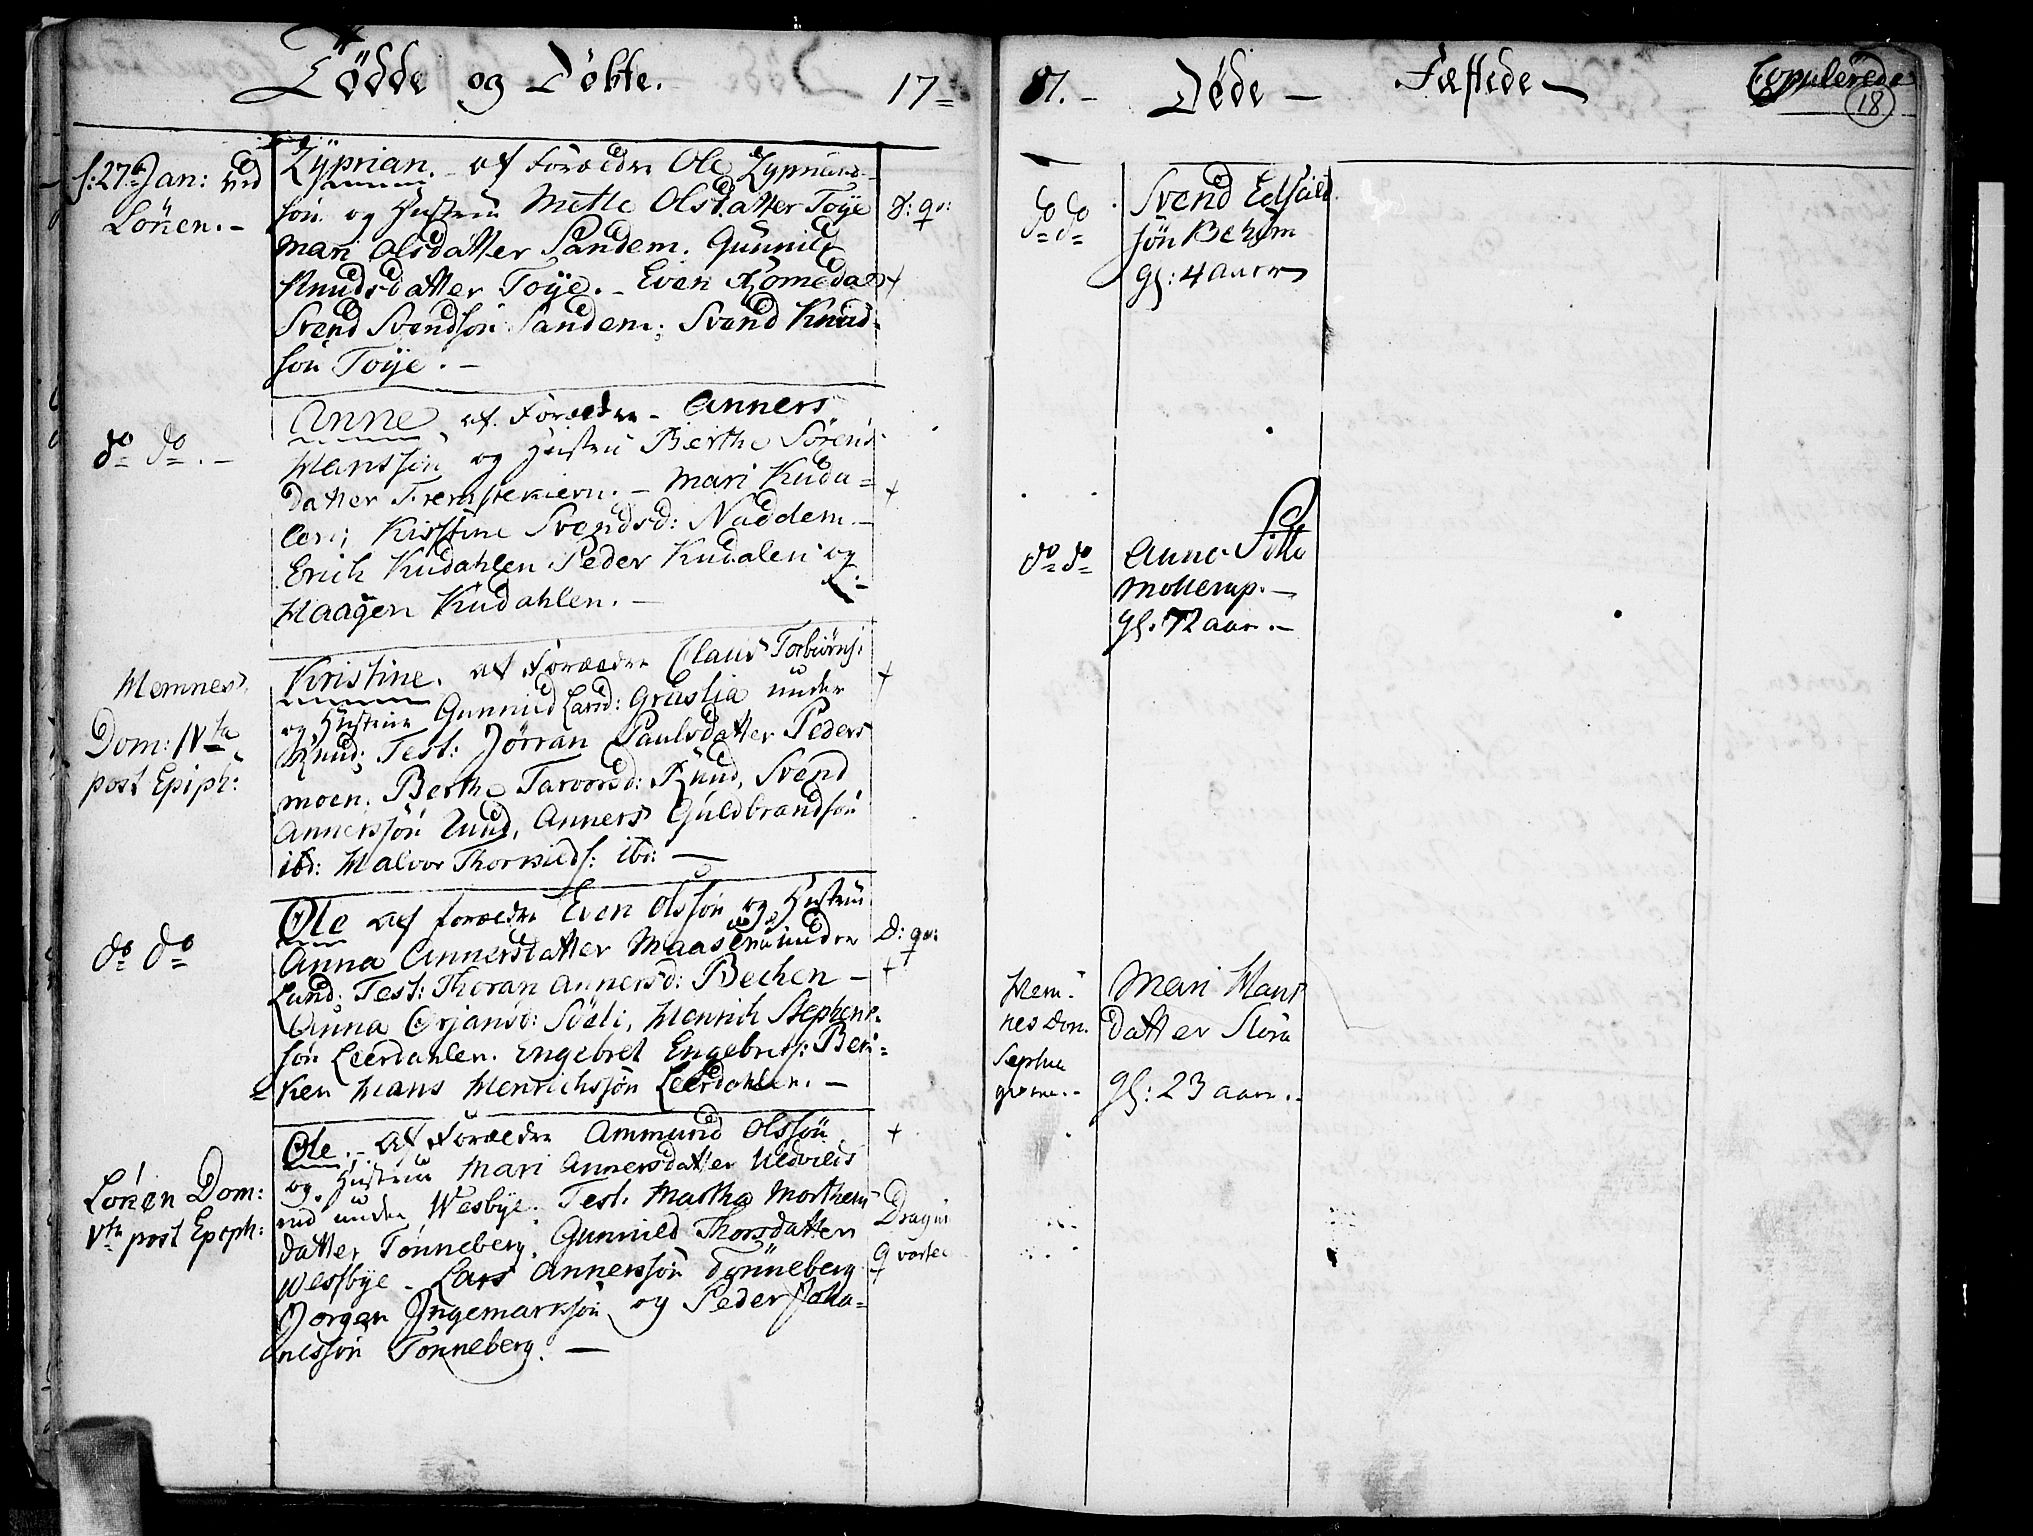 Fødde og Döbte.
17=
d: 27de Jan: ved
Lönen. -
Zÿprian. af Forældre Ole Zyprians-
sön og Hustru Mette Olsdatter Toÿe
Mari Olsdatter Sandem. Gunnild
Knudsdatter Toÿe. - Even Romedal
Svend Svendsön Sandem; Svend Knud-
sön Toÿe. -
D: qv:
+
do do. -
Anne af Forældre - Anners
Hansson og Hustru Berthe Sörens-
datter Fremstekiern. - Mari Kuda=
len; Kirstine Svendsd: Naddem. -
Erich Kudahlen Peder Kudalen og
Haagen Kudahlen. -
+
Hemnes
Dom: IVta
post Epiph:
Kristine. af Forældre Claus Torbiörns:
og Hustrue Gunnild Larsd: Grüslia under
Knud; Test: Jörran Paulsdatter Peders
moen. Berthe Tarvorsd: Kund, Svend
Annerssön Lund, Anners Guldbrandsön
ibd: Halvor Thorkilds: ibd: -
+
do do
Ole af forældre Even Olssön og Hustrue
Anna Annersdatter Maase under
Lund; Test: Thoran Annersd: Bechen -
Anna Örjansd: Södli, Henrich Stephens-
sön Leerdahlen. Engebret Engebrets: Bec=
ken Hans Henrichssön Leerdahlen. -
D: qv:
+
Lönen Dom:
Vta post Epiph:
Ole. - af Forældre Ammund Olssön
og Hustrue Mari Annersdatter
under Wesbÿe. Test. Martha Morthens
datter Tönneberg. Gunnild Thorsdatter
Wessbÿe - Lars Annerssön Tönneberg
Jorgen Ingemarssön og Peder Joha=
nessön Tönneberg. -
+
Dragin
Qvarte
87. -
Döde -
Fæstede -
Copulerede
18
do do
Svend
sön
gl: 4 aar
do do
Anne Sitte
Mollerup. -
gl. 72 aar. -
Hem-
nes Dom.
Septua
gesim. -
Mari Hans
datter Slora
gl: 23 aar. -